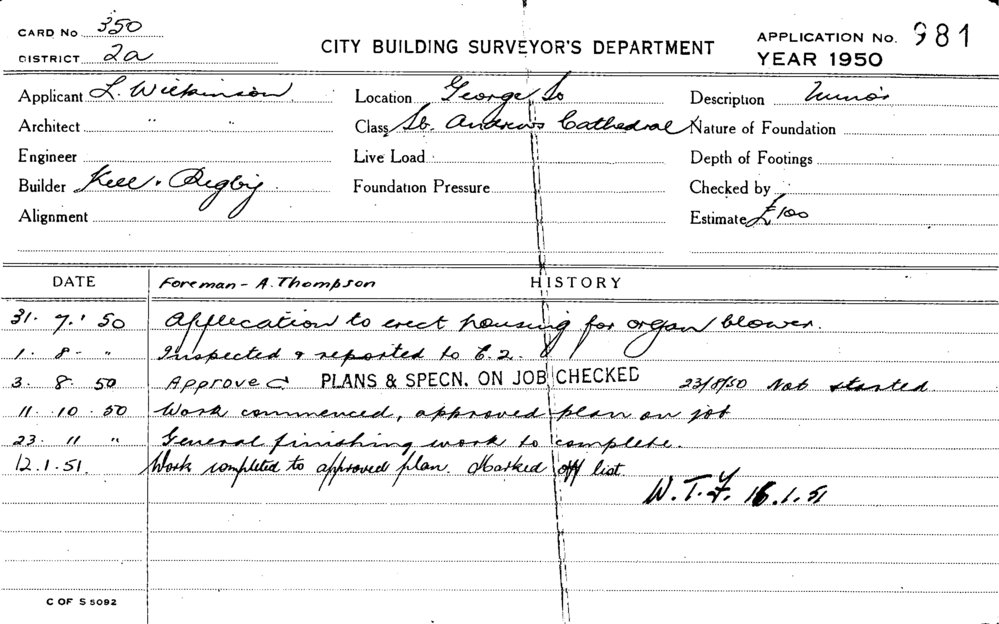 CARD No 350
DISTRICT 2a
CITY BUILDING SURVEYOR'S DEPARTMENT
APPLICATION No. 981
YEAR 1950
Applicant L. Wilkinson
Location George St
Description Minor
Architect " "
Class St. Andrews Cathedral
Nature of Foundation
Engineer
Live Load
Depth of Footings
Builder Kell & Rigby
Foundation Pressure
Checked by
Alignment
Estimate £100
DATE
Foreman - A. Thompson
HISTORY
31. 7. 50 Application to erect housing for organ blower.
1. 8 - " Inspected & reported to C.2.
3. 8. 50 Approved PLANS & SPECN. ON JOB CHECKED 23/8/50 Not started
11. 10. 50 Work commenced, approved plan on job
23. 11 " General finishing work to complete.
12.1.51. Work completed to approved plan. Marked off list.
W.T.F. 16.1.51
C OF S 5092